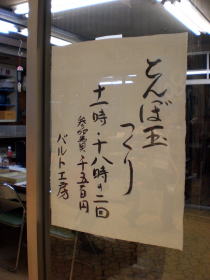 とんぼ玉
つくり
十一時・十八時の二回
参加費千五百円
バルト工房